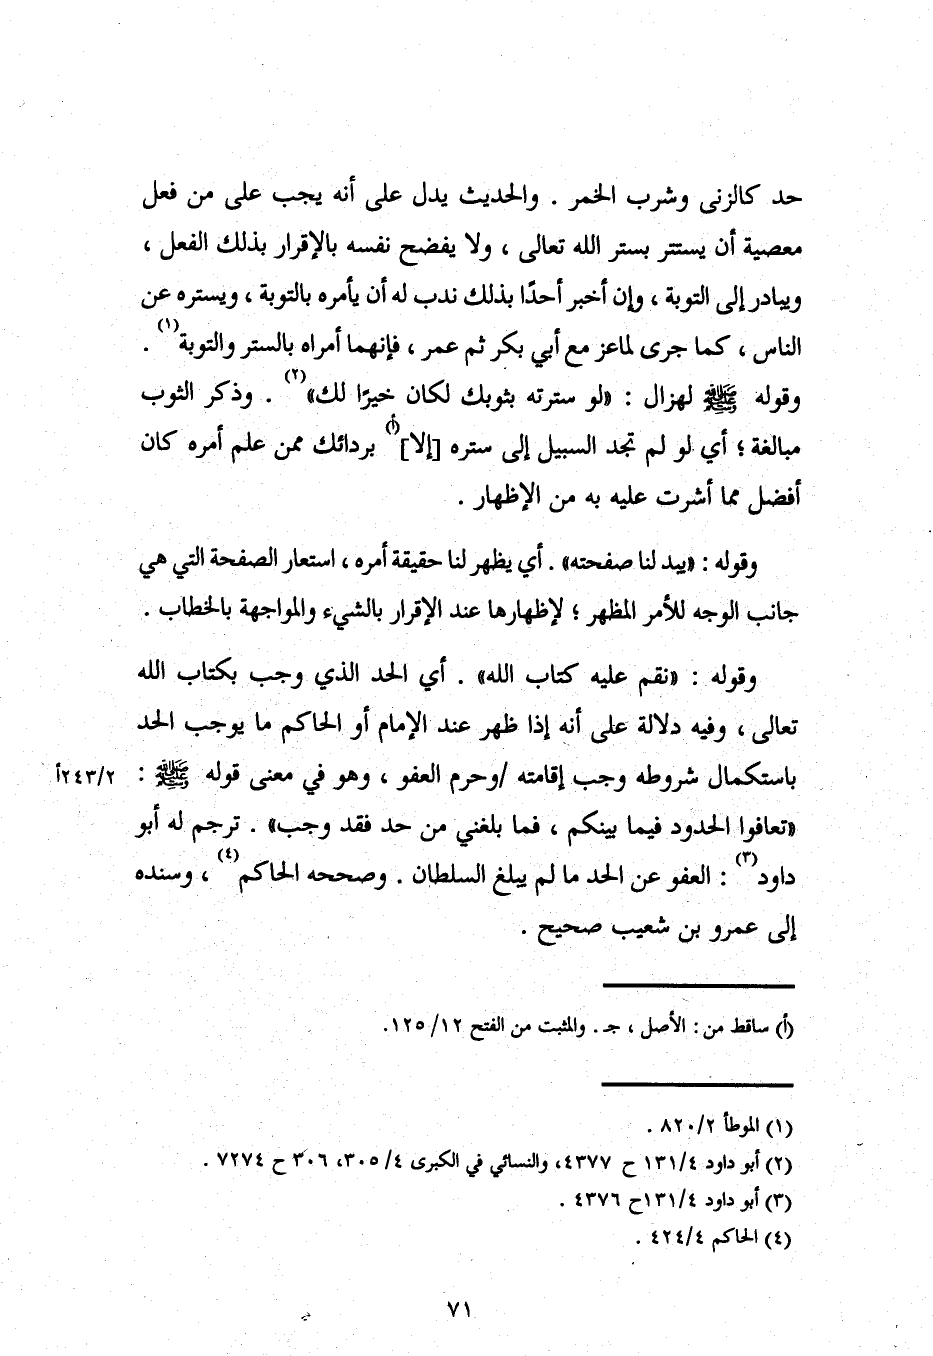 حد كالزنى وشرب الخمر . والحديث يدل على أنه يجب على من فعل
معصية أن يستتر بستر الله تعالى ، ولا يفضح نفسه بالإقرار بذلك الفعل ،
ويبادر إلى التوبة ، وإن أخبر أحدًا بذلك ندب له أن يأمره بالتوبة ، ويستره عن
الناس ، كما جرى لماعز مع أبي بكر ثم عمر ، فإنهما أمراه بالستر والتوبة(١) .
وقوله ﷺ لهزال : «لو سترته بثوبك لكان خيرًا لك»(٢) . وذكر الثوب
مبالغة ؛ أي لو لم تجد السبيل إلى ستره [إلا](أ) بردائك ممن علم أمره كان
أفضل مما أشرت عليه به من الإظهار .
وقوله : «يبد لنا صفحته» . أي يظهر لنا حقيقة أمره ، استعار الصفحة التي هي
جانب الوجه للأمر المظهر ؛ لإظهارها عند الإقرار بالشيء والمواجهة بالخطاب .
وقوله : «نقم عليه كتاب الله» . أي الحد الذي وجب بكتاب الله
تعالى ، وفيه دلالة على أنه إذا ظهر عند الإمام أو الحاكم ما يوجب الحد
باستكمال شروطه وجب إقامته /وحرم العفو ، وهو في معنى قوله ﷺ : ٢٤٣/٢أ
«تعافوا الحدود فيما بينكم ، فما بلغني من حد فقد وجب» . ترجم له أبو
داود(٣) : العفو عن الحد ما لم يبلغ السلطان . وصححه الحاكم(٤) ، وسنده
إلى عمرو بن شعيب صحيح .
(أ) ساقط من : الأصل ، جـ . والمثبت من الفتح ١٢/ ١٢٥.
(١) الموطأ ٨٢٠/٢ .
(٢) أبو داود ١٣١/٤ ح ٤٣٧٧، والنسائي في الكبرى ٤/ ٣٠٥، ٣٠٦ ح ٧٢٧٤ .
(٣) أبو داود ١٣١/٤ح ٤٣٧٦ .
(٤) الحاكم ٤٢٤/٤ .
٧١